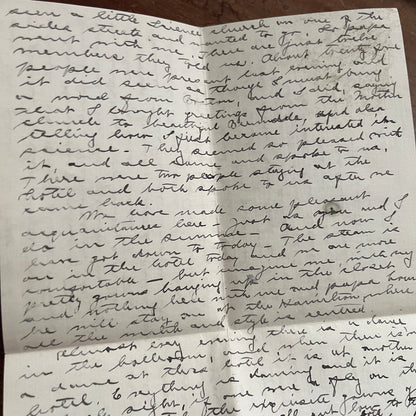 seen a little Science church on one of the
side streets and wanted to go. So papa
went with me. There are just twelve
members they told us. About twenty five
people were present last evening. And
it did seem as though I must bring
a word from Boston, and I did, saying
that I brought greetings from the Mother
church to beautiful Bermuda, and also
telling how I first became interested in
science. They seemed so pleased with
it, and all came and spoke to us.
There were two people staying at the
hotel and both spoke to us after we
came back.
We have made some pleasant
acquaintances here just as you and I
do in the summer — and now I
have got down to today — The steam is
on in the hotel today and we are more
comfortable — but imagine me with my
pretty gowns hanging up in the closet
and nothing here with me and papa hopes
he will stay on at the Hamilton where
all the and style is centred.
Almost every evening there is a dance
in the ballroom, and when there isn't
a dance at this hotel it is at another
hotel. Everything is dancing and it is
a sight, if one were to play on the
of the exquisite gowns of